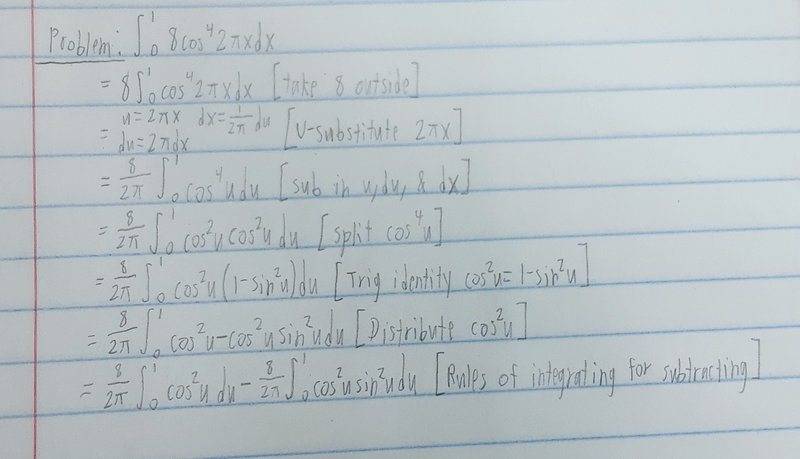 Problem: ∫₀¹ 8cos⁴2πxdx
= 8∫₀¹ cos⁴2πxdx [take 8 outside]
= u=2πx dx=1/2π du [U-substitute 2πx]
du=2πdx
= 8/2π ∫₀¹ cos⁴udu [sub in u,du, & dx]
= 8/2π ∫₀¹ cos²ucos²udu [split cos⁴u]
= 8/2π ∫₀¹ cos²u(1-sin²u)du [Trig identity cos²u=1-sin²u]
= 8/2π ∫₀¹ cos²u-cos²usin²udu [Distribute cos²u]
= 8/2π ∫₀¹ cos²udu - 8/2π ∫₀¹ cos²usin²udu [Rules of integrating for subtracting]